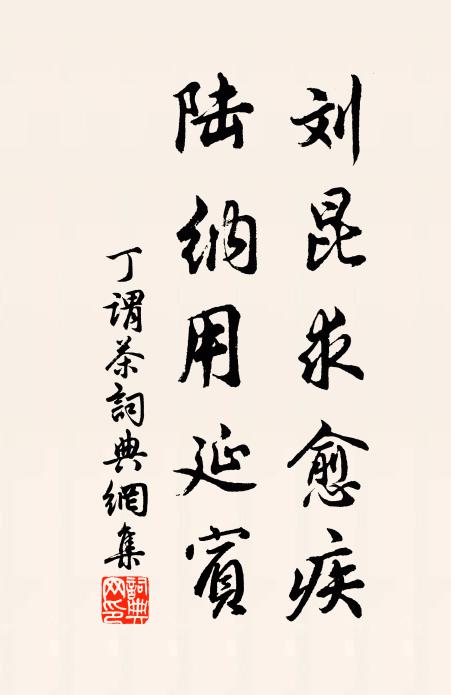 刘昆求愈疾
陆纳用延宾
丁谓茶詞典網集
詞典网印